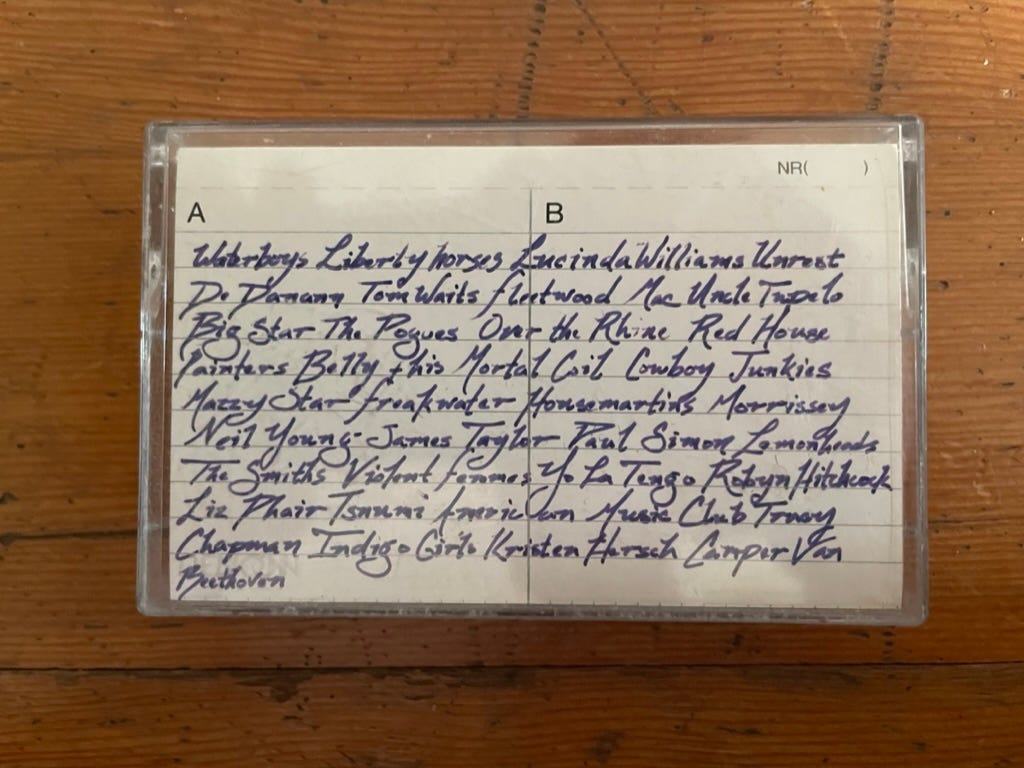 NR( )
A B
Waterboys Liberty horses Lucinda Williams Unrest
De Danann Tom Waits fleetwood Mac Uncle Tupelo
Big Star The Pogues Over the Rhine Red House
Painters Belly this Mortal Coil Cowboy Junkies
Mazzy Star freakwater Housemartins Morrissey
Neil Young James Taylor Paul Simon Lemonheads
The Smiths Violent femmes Yo La Tengo Robyn Hitchcock
Liz Phair Tsnumi American Music Club Tracy
Chapman Indigo Girls Kristen Hersch Camper Van
Beethoven